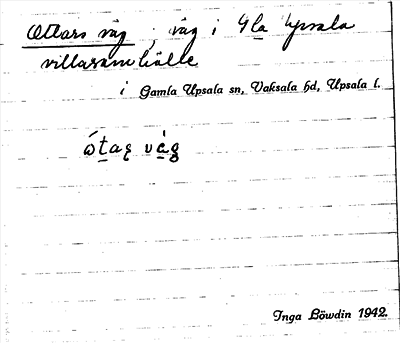 Ottars väg : väg i Gla Upsala
villasamhälle
i Gamla Upsala sn, Vaksala hd, Upsala l.
Inga Böwdin 1942.